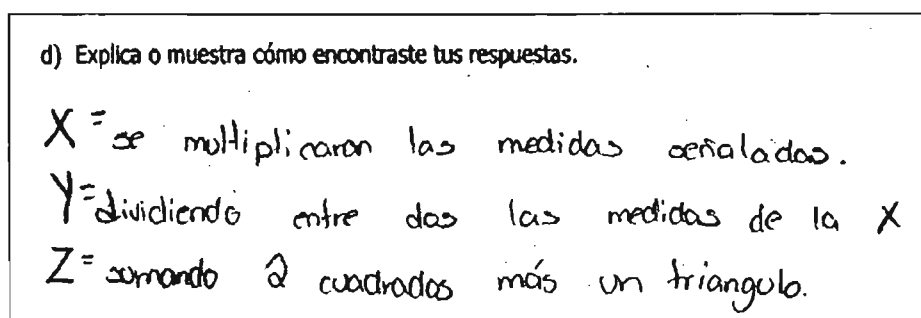 d) Explica o muestra cómo encontraste tus respuestas.
X = se multiplicaron las medidas señaladas.
Y = dividiendo entre dos las medidas de la X
Z = sumando 2 cuadrados más un triangulo.